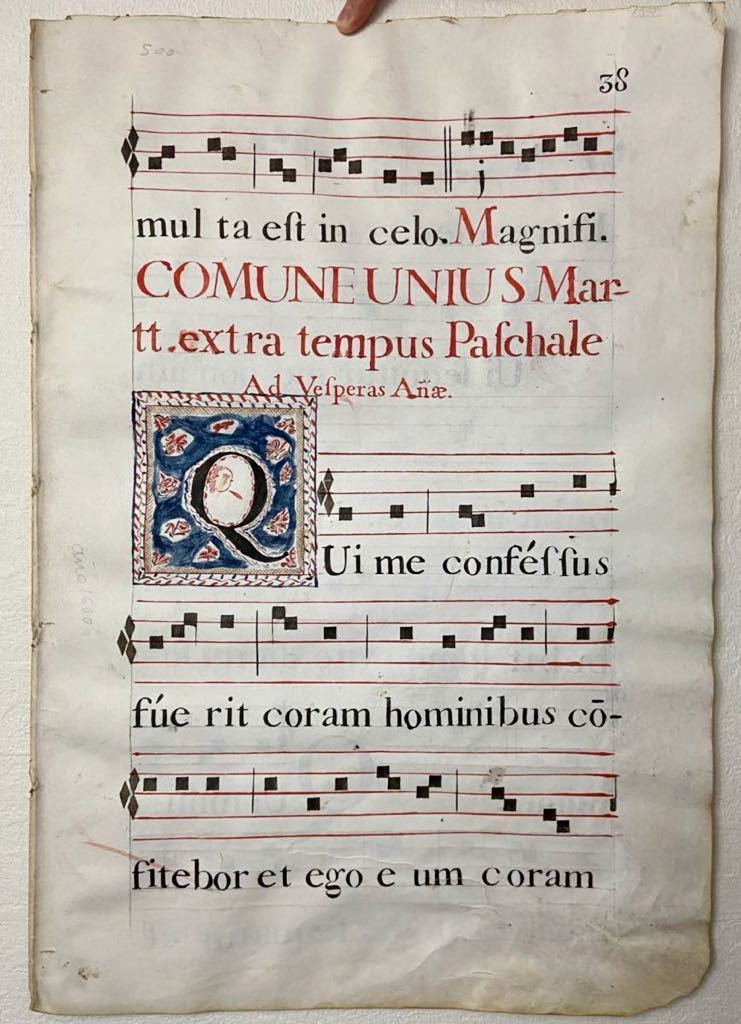 500
38
j
mul ta eſt in celo. Magnifi.
COMUNE UNIUS Mar-
tt. extra tempus Paſchale
Ad Veſperas Añæ.
QUi me conféſſus
fúe rit coram hominibus cō-
fitebor et ego e um coram